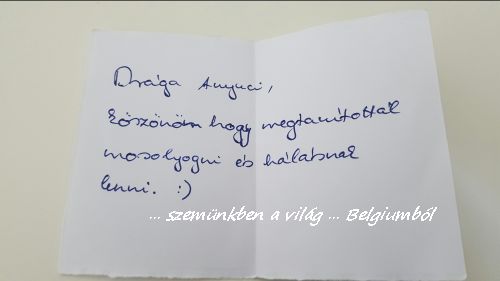 Drága Anyuci,
köszönöm hogy megtanítottál
mosolyogni és hálásnak
lenni. :)
... szemünkben a világ ... Belgiumból